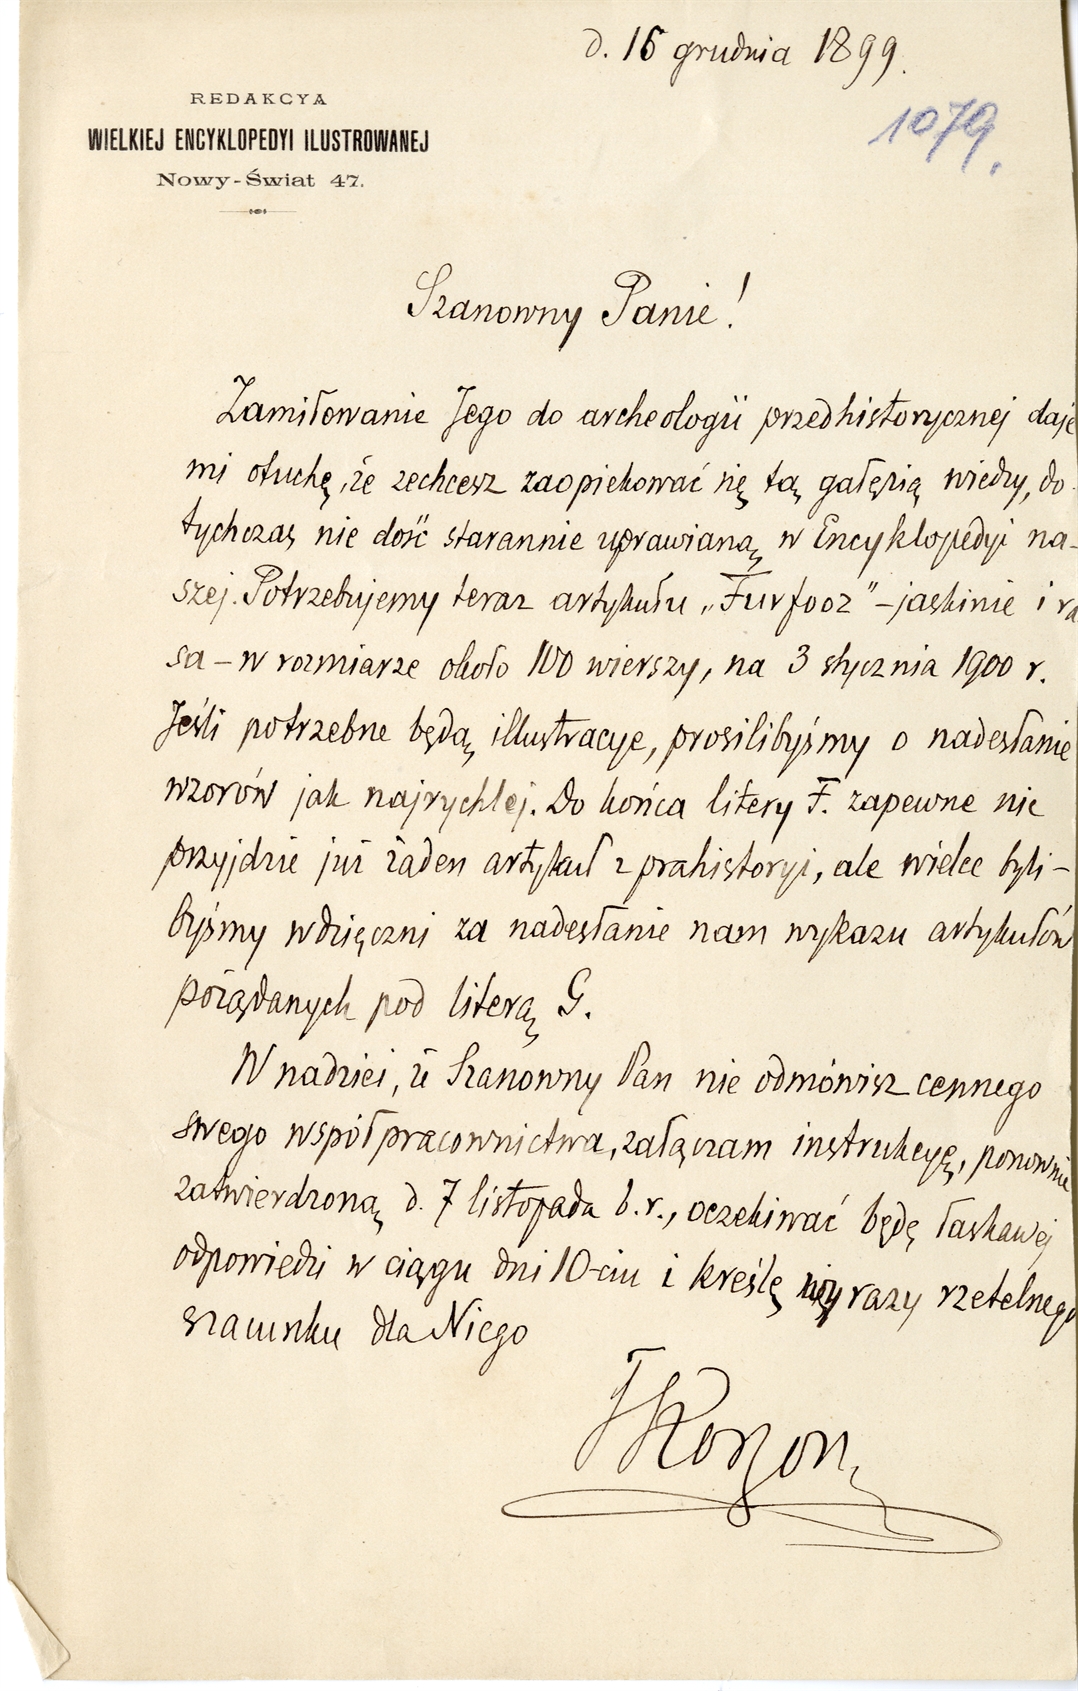 d. 16 grudnia 1899.
1079.
REDAKCYA
WIELKIEJ ENCYKLOPEDYI ILUSTROWANEJ
Nowy-Świat 47.
Szanowny Panie!
Zamiłowanie Jego do archeologii przedhistorycznej daje
mi otuchę, że zechcesz zaopiekować się tą gałęzią wiedzy, do-
tychczas nie dość starannie uprawianą w Encyklopedyi na-
szej. Potrzebujemy teraz artykułu „Furfooz" – jaskinie i ra
sa – w rozmiarze około 100 wierszy, na 3 stycznia 1900 r.
Jeśli potrzebne będą illustracye, prosilibyśmy o nadesłanie
wzorów jak najrychlej. Do końca litery F. zapewne nie
przyjdzie już żaden artykuł z prahistoryi, ale wielce byli-
byśmy wdzięczni za nadesłanie nam wykazu artykułów
pożądanych pod literą G.
W nadziei, iż Szanowny Pan nie odmówisz cennego
swego współpracownictwa, załączam instrukcyę, ponownie
zatwierdzoną d. 7 listopada b.r., oczekiwać będę łaskawej
odpowiedzi w ciągu dni 10-ciu i kreślę wyrazy rzetelnego
szacunku dla Niego
TKorzon